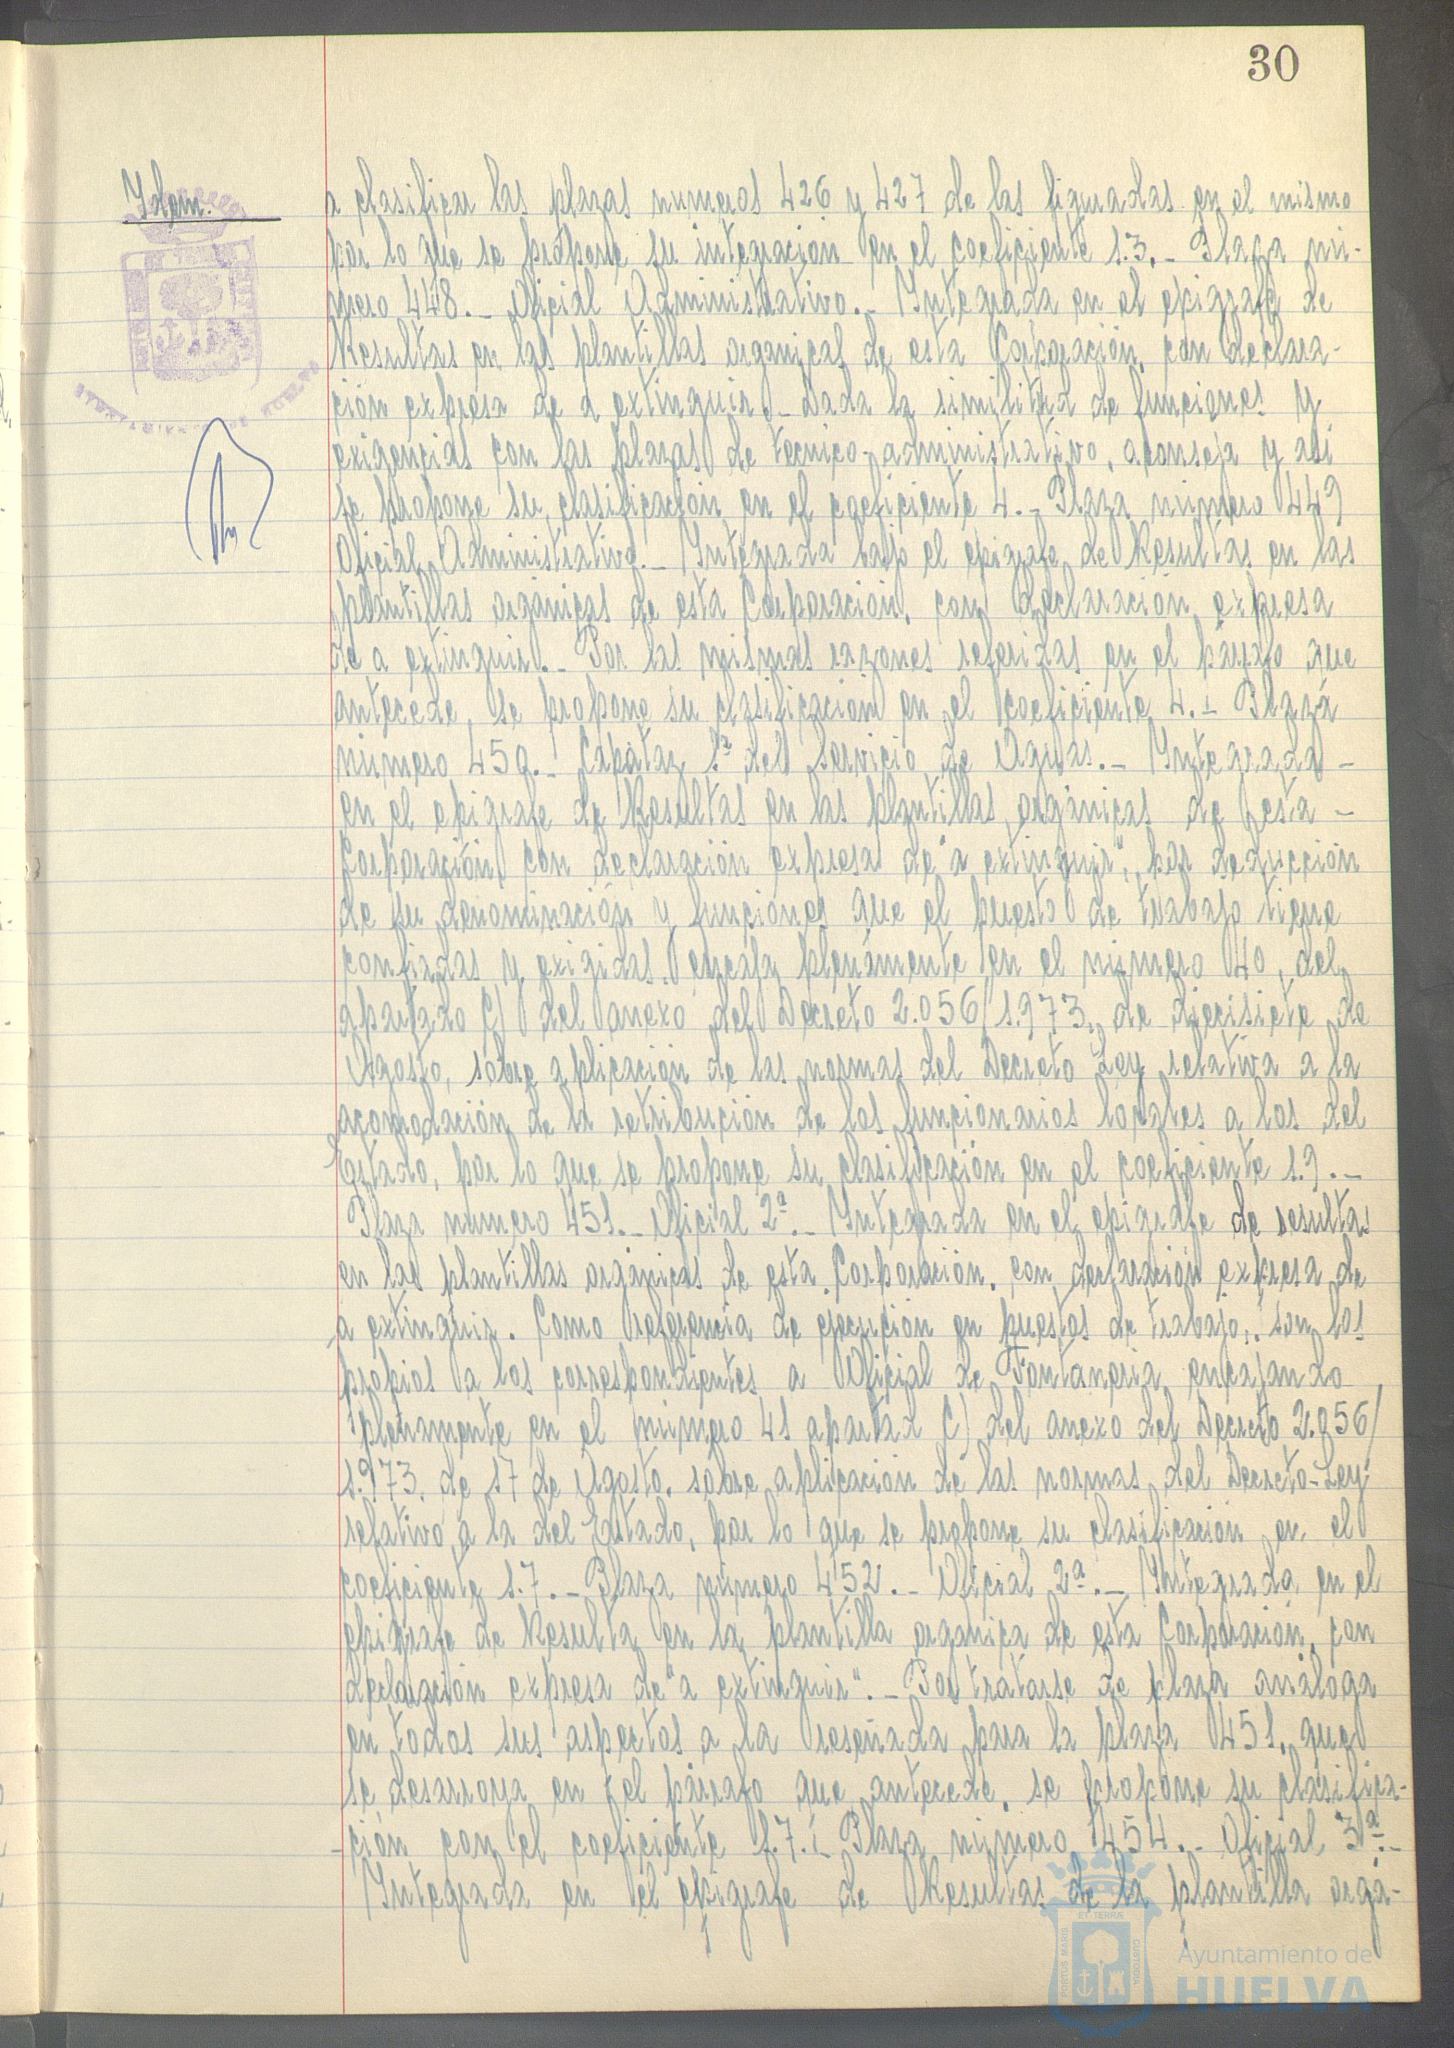 30
Idem.
a clasificar las plazas numeros 426 y 427 de las figuradas en el mismo
por lo que se propone su integracion en el coeficiente 1.3.- Plaza nú-
mero 448.- Oficial Administrativo.- Integrada en el epigrafe de
Resultas en las plantillas organicas de esta Corporación, con declara-
ción expresa de a extinguir.- Dada la similitud de funciones y
exigencias con las plazas de tecnico-administrativo, aconseja y asi
se propone su clasificación en el coeficiente 4.- Plaza número 449
Oficial Administrativo.- Integrada bajo el epigrafe de Resultas en las
plantillas orgánicas de esta Corporación, con declaración expresa
de a extinguir.- Por las mismas razones referidas en el párrafo que
antecede, se propone su clasificación en el coeficiente 4.- Plaza
número 450.- Capataz 1ª del Servicio de Aguas.- Integrada -
en el epigrafe de Resultas en las plantillas orgánicas de esta -
Corporación, con declaración expresa de "a extinguir", por deducción
de su denominación y funciones que el puesto de trabajo tiene
confiadas y exigidas, encaja plenamente en el número 40, del
apartado C) del anexo del Decreto 2.056/1.973, de diecisiete de
Agosto, sobre aplicación de las normas del Decreto Ley relativa a la
acomodación de la retribución de los funcionarios locales a los del
Estado, por lo que se propone su clasificación en el coeficiente 1.9.-
Plaza numero 451.- Oficial 2ª.- Integrada en el epigrafe de resultas
en las plantillas orgánicas de esta Corporación, con declaración expresa de
a extinguir. Como referencia de ejecución en puestos de trabajo, son los
propios a los correspondientes a Oficial de Fontaneria, encajando
plenamente en el número 41 apartad C) del anexo del Decreto 2.056/
1.973, de 17 de Agosto, sobre aplicación de las normas del Decreto-Ley
relativo a la del Estado, por lo que se propone su clasificación en el
coeficiente 1.7.- Plaza número 452.- Oficial 2ª.- Integrada en el
epigrafe de Resulta en la plantilla organica de esta Corporación, con
declaración expresa de "a extinguir".- Por tratarse de plaza análoga
en todos sus aspectos a la reseñada para la plaza 451, que
se desarroya en el párrafo que antecede, se propone su clasifica-
-ción con el coeficiente 1.7.- Plaza número 454.- Oficial 3ª.-
Integrada en el epigrafe de Resultas de la plantilla orgá-
PORTUS MARIS
ET TERRÆ
CUSTODIA
Ayuntamiento de
HUELVA